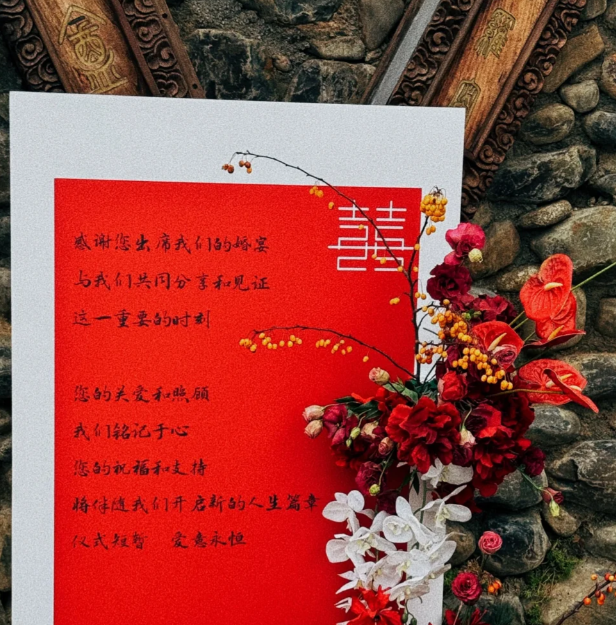 囍
感谢您出席我们的婚宴
与我们共同分享和见证
这一重要的时刻
您的关爱和照顾
我们铭记于心
您的祝福和支持
将伴随我们开启新的人生篇章
仪式短暂 爱意永恒